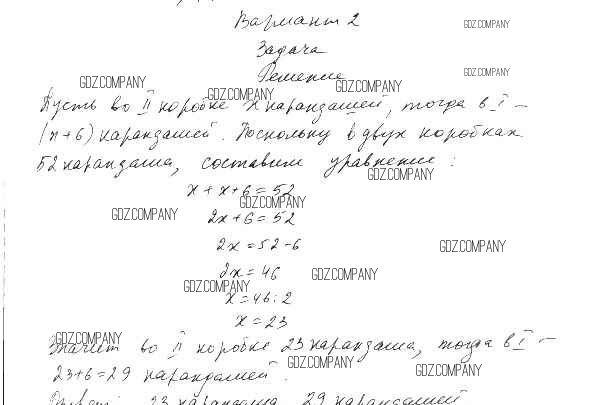 Вариант 2
GDZ.COMPANY
Задача
GDZ.COMPANY
Решение
GDZ.COMPANY
GDZ.COMPANY
GDZ.COMPANY
Пусть во II коробке x карандашей, тогда в I –
(x+6) карандашей. Поскольку в двух коробках
52 карандаша, составим уравнение:
GDZ.COMPANY
x + x + 6 = 52
GDZ.COMPANY
GDZ.COMPANY
2x + 6 = 52
2x = 52 - 6
GDZ.COMPANY
2x = 46
GDZ.COMPANY
GDZ.COMPANY
x = 46 : 2
x = 23
GDZ.COMPANY
Значит во II коробке 23 карандаша, тогда в I –
GDZ.COMPANY
23+6=29 карандашей.
GDZ.COMPANY
23 карандаша, 29 карандашей